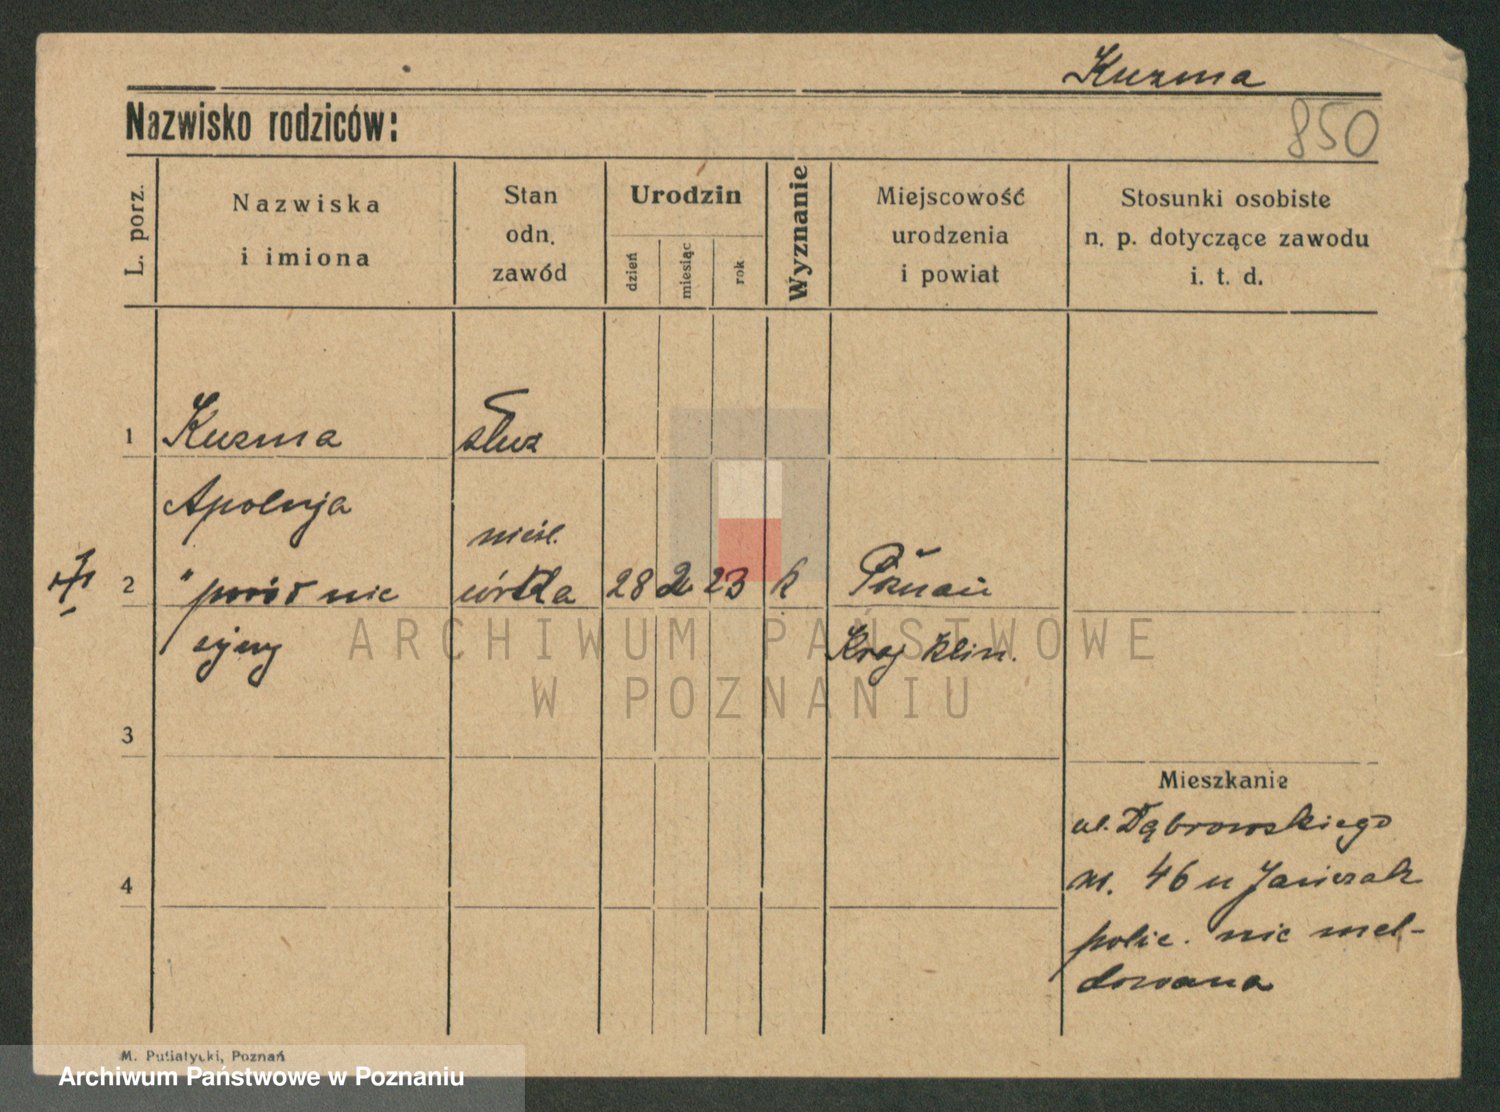 Kuzma
Nazwisko rodziców:
850
L. porz.
Nazwiska
i imiona
Stan
odn.
zawód
Urodzin
dzień
miesiąc
rok
Wyznanie
Miejscowość
urodzenia
i powiat
Stosunki osobiste
n. p. dotyczące zawodu
i. t. d.
1 Kuzma służ
Apolnja
nieśl.
2 " poród nie córka 28 2 23 k Poznań
żywy Kraj klin.
3
Mieszkanie
ul. Dąbrowskiego
4 nr. 46 u Janiczak
polic. nie mel-
dowana
M. Putiatycki, Poznań
ARCHIWUM PAŃSTWOWE
W POZNANIU
Archiwum Państwowe w Poznaniu